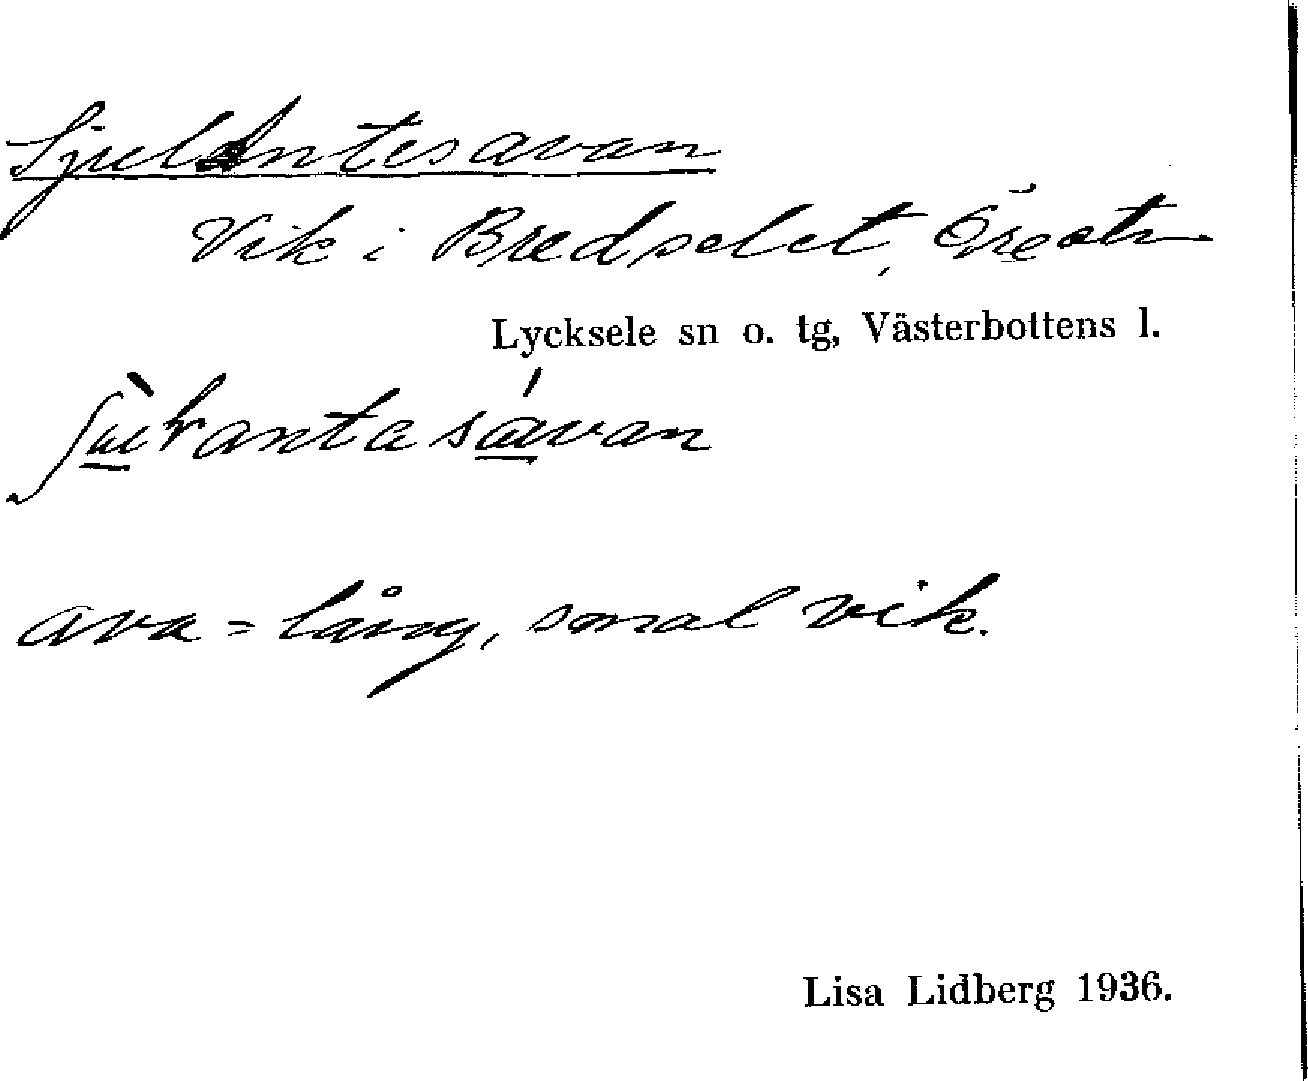 Sjul Antesavan
Vik i Bredselet,
Lycksele sn o. tg, Västerbottens l.
ava = lång, smal vik.
Lisa Lidberg 1936.